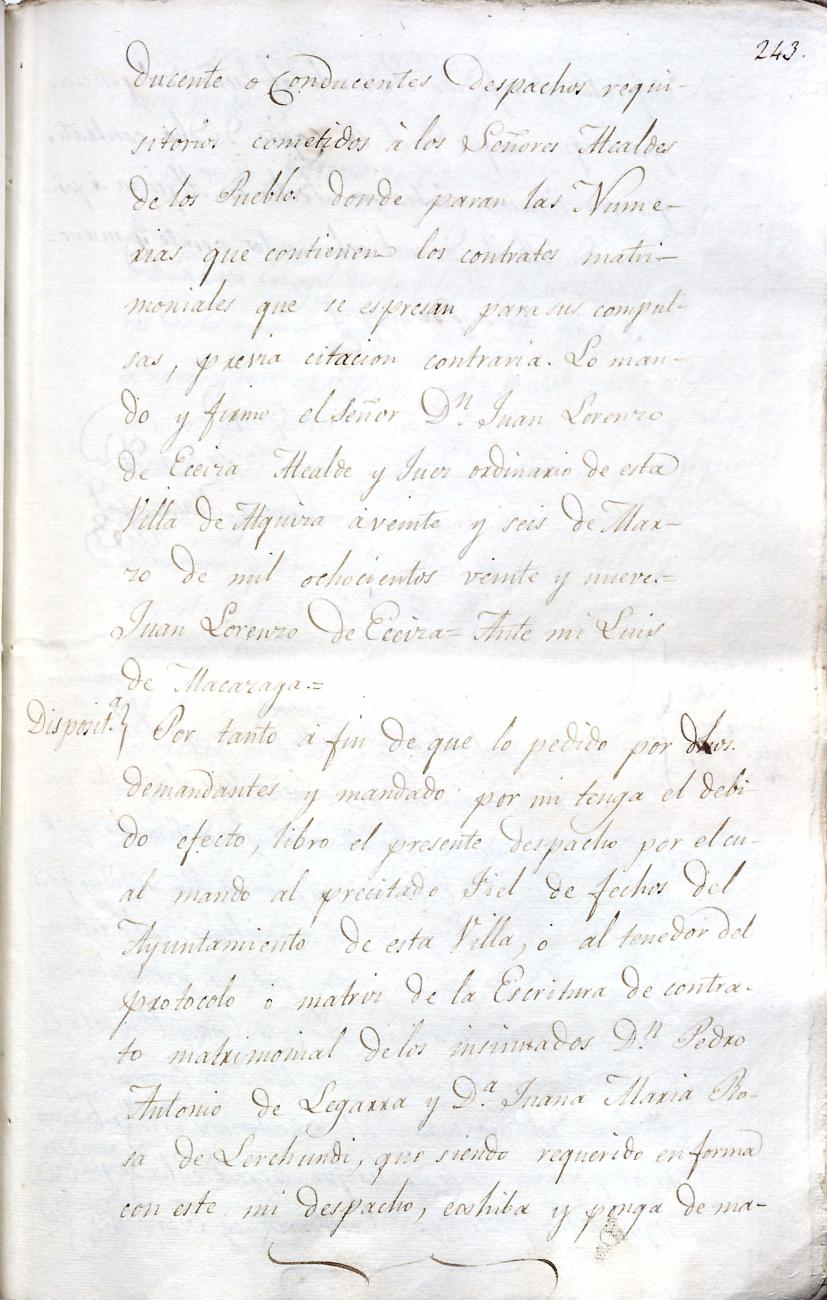 243.
ducente ó Conducentes Despachos requi-
sitorios cometidos à los Señores Alcaldes
de los Pueblos donde paran las Nume-
rias que contienen los contratos matri-
moniales que se espresan para sus compul-
sas, previa citacion contraria. Lo man-
do y firmo el Señor Dn. Juan Lorenzo
de Eceiza Alcalde y Juez ordinario de esta
Villa de Alquiza à veinte y seis de Mar-
zo de mil ochocientos veinte y nueve.=
Juan Lorenzo de Eceiza= Ante mi Luis
de Macazaga.=
Disposit.a} Por tanto à fin de que lo pedido por dhos.
demandantes y mandado por mi tenga el debi-
do efecto, libro el presente despacho por el cu-
al mando al precitado Fiel de fechos del
Ayuntamiento de esta Villa, ó al tenedor del
protocolo ó matriz de la Escritura de contra-
to matrimonial de los insinuados Dn. Pedro
Antonio de Legarra y D.a Juana Maria Ro-
sa de Lerchundi, que siendo requerido en forma
con este mi despacho, ecshiba y ponga de ma-